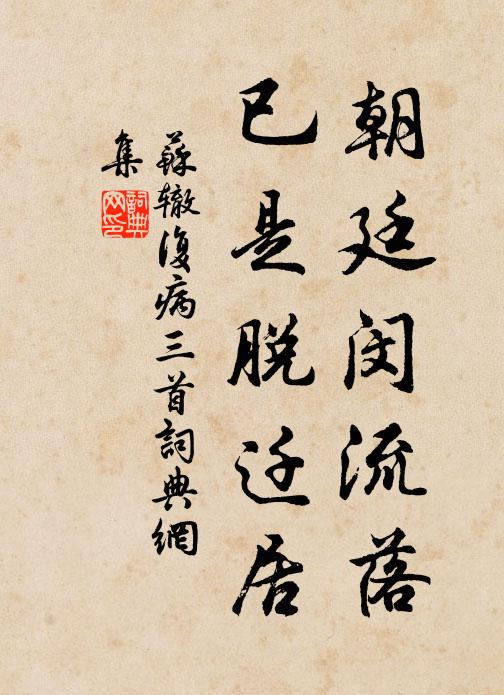 朝廷闵流落
已是脱迁居
蘇辙復病三首詞典網
集
詞典网印